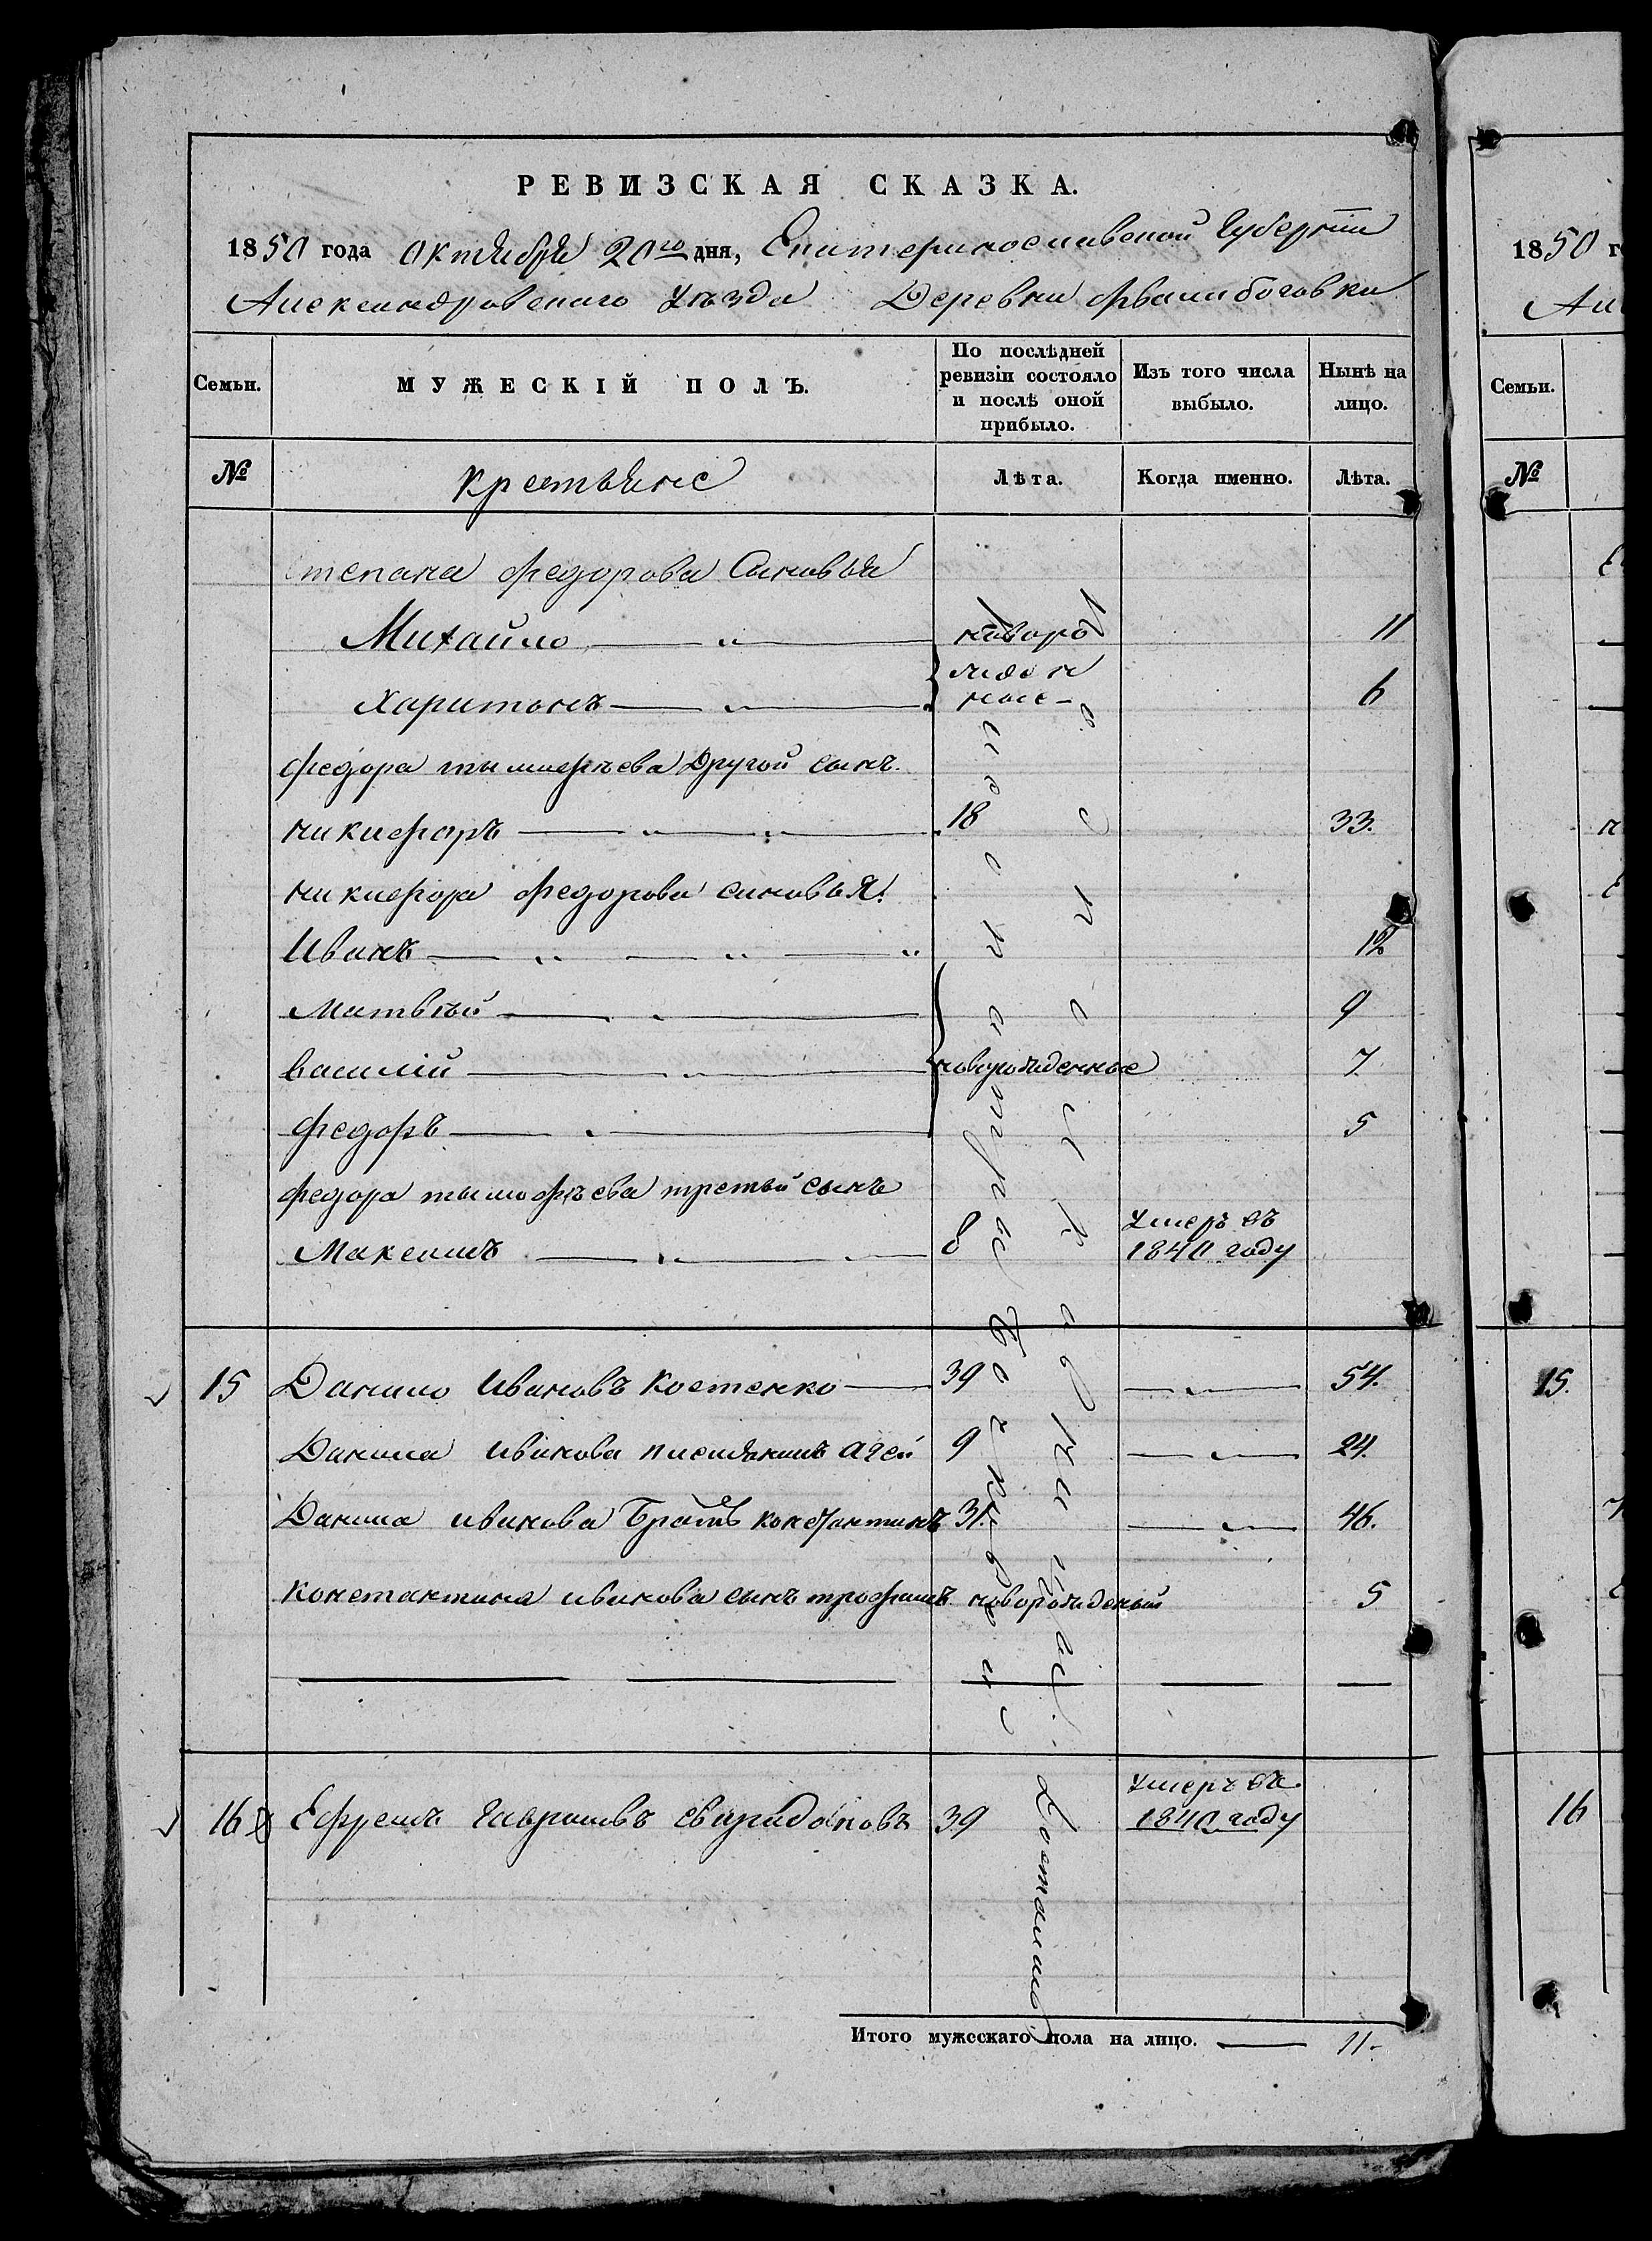 РЕВИЗСКАЯ СКАЗКА.
1850 года Октября 20го дня, Екатеринославской Губернии
Александровскаго Уезда Деревни
Семьи. МУЖЕСКІЙ ПОЛЪ. По послѣдней ревизіи состояло и послѣ оной прибыло. Изъ того числа выбыло. Нынѣ на лицо.
№ крестьяне Лѣта. Когда именно. Лѣта.
Степана Федорова Сыновья
Михайло новоро 11
Харитонъ жден ные 6
Федора тымофѣева Другой сынъ
никифоръ 18 33.
никифора Федорова синовья:
Иванъ 12
Матвѣй 9
василій новорожденные 7
Федоръ 5
Федора тымофѣева третьй сынъ
Максимъ 8 Умеръ въ 1840 году
15 Данило Ивановъ Костенко 39 54.
Данила иванова 9 24.
Данила иванова Братъ константинъ 31. 46.
константина иванова сынъ трофимъ новорожденый 5
16 Ефремъ Гавриловъ 39 Умеръ въ 1840 году
Итого мужескаго пола на лицо. 11.
1850
15.
16
Семьи.
№